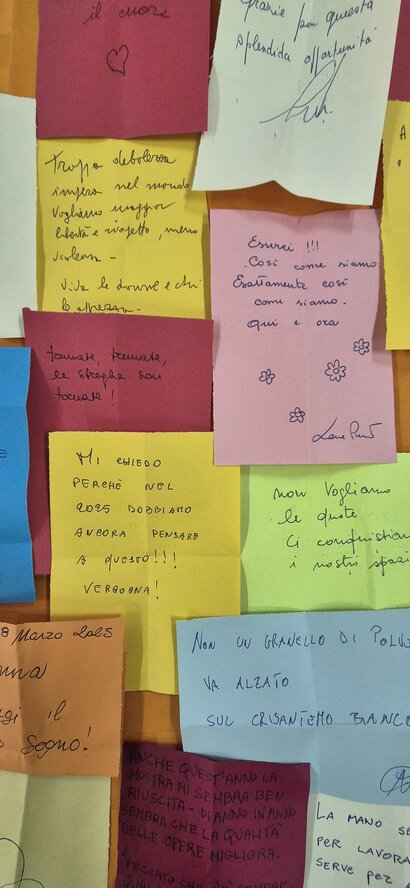 il cuore
Grazie per questa
splendida opportunità
Troppa debolezza
impera nel mondo
Vogliamo maggior
libertà e rispetto, meno
violenza -
Viva le donne e chi
le apprezza -
Esserci !!!
Così come siamo
Esattamente così
come siamo.
Qui e ora
tremate, tremate,
le streghe son
tornate !
MI CHIEDO
PERCHÈ NEL
2025 DOBBIAMO
ANCORA PENSARE
A QUESTO!!!
VERGOGNA!
non Vogliamo
le quote
Ci conquistian
i nostri spazi
8 Marzo 2025
il
Sogno!
NON UN GRANELLO DI POLVE
VA ALZATO
SUL CRISANTEMO BIANCO
ANCHE QUEST'ANNO LA
MOSTRA MI SEMBRA BEN
RIUSCITA - DI ANNO IN ANNO
SEMBRA CHE LA QUALITÀ
DELLE OPERE MIGLIORA.
LA MANO SE
PER LAVORA
SERVE PER